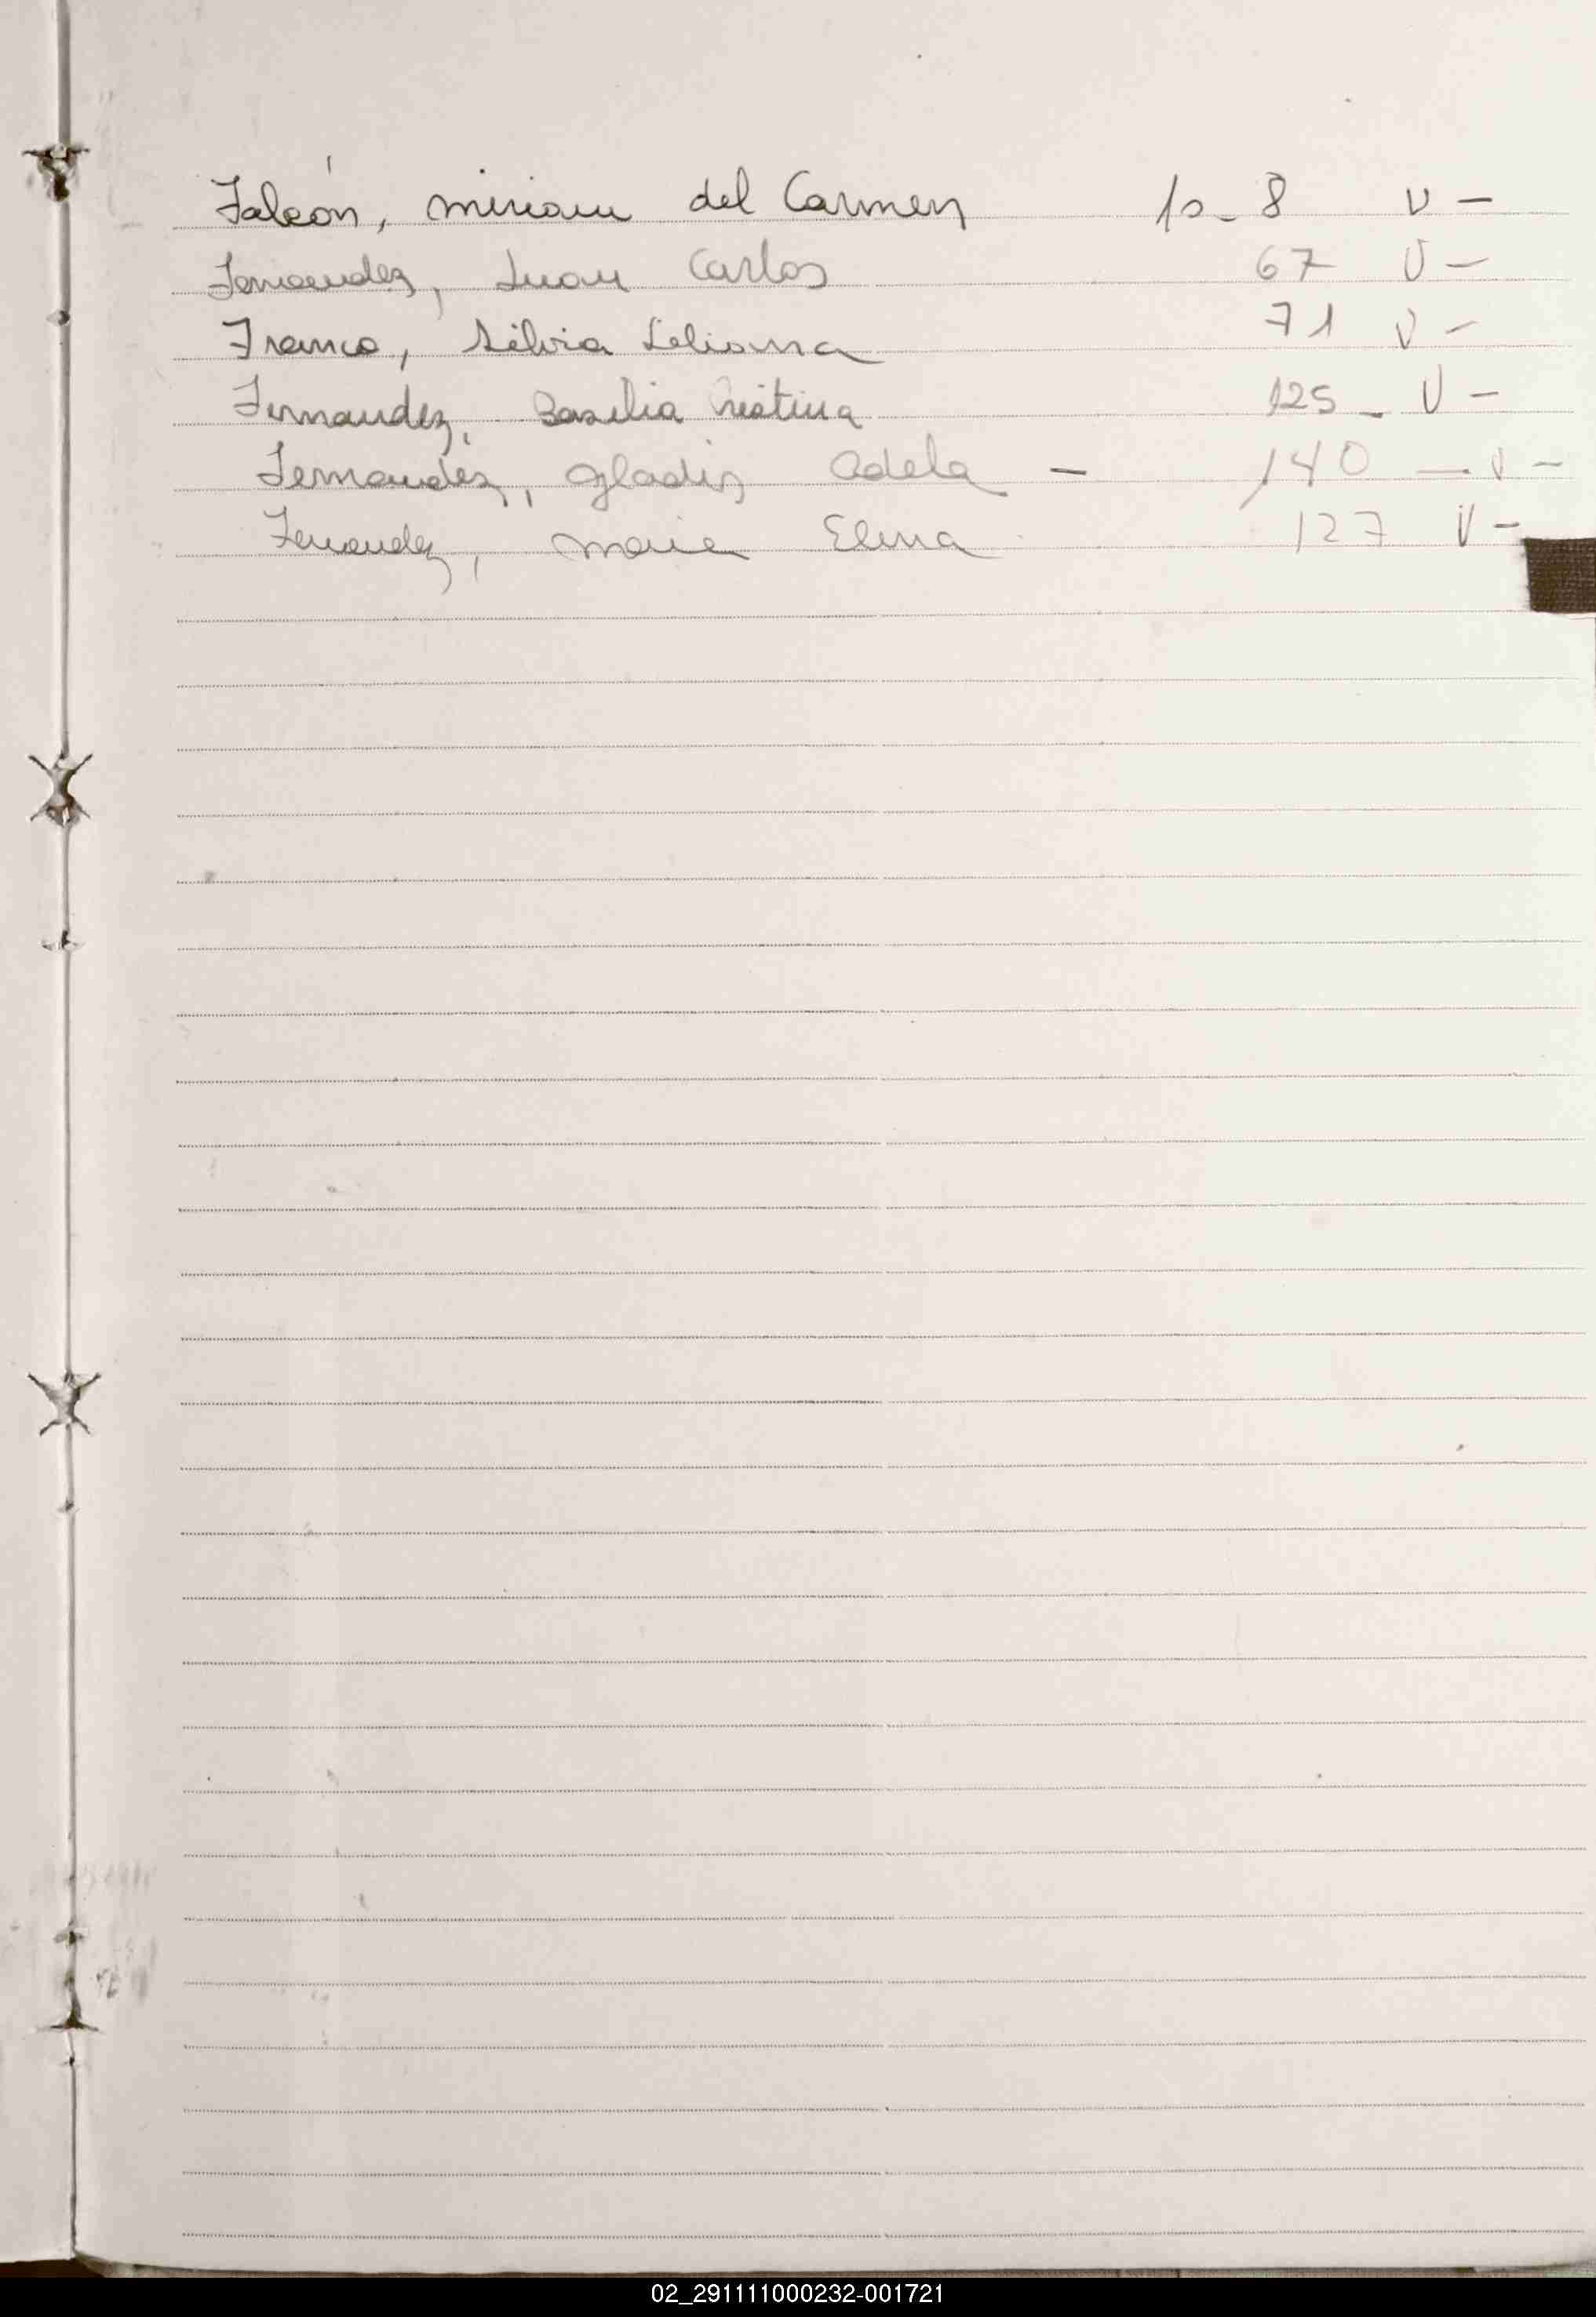 Falcón, Miriam del Carmen fo- 8 V -
Fernandez, Juan Carlos 67 V -
Franco, Silvia Liliana 71 V -
Fernandez, Basilia Cristina 125 - V -
Fernandez, Gladis Adela - 140 - V -
Fernandez, Maria Elena 127 V -
02_291111000232-001721